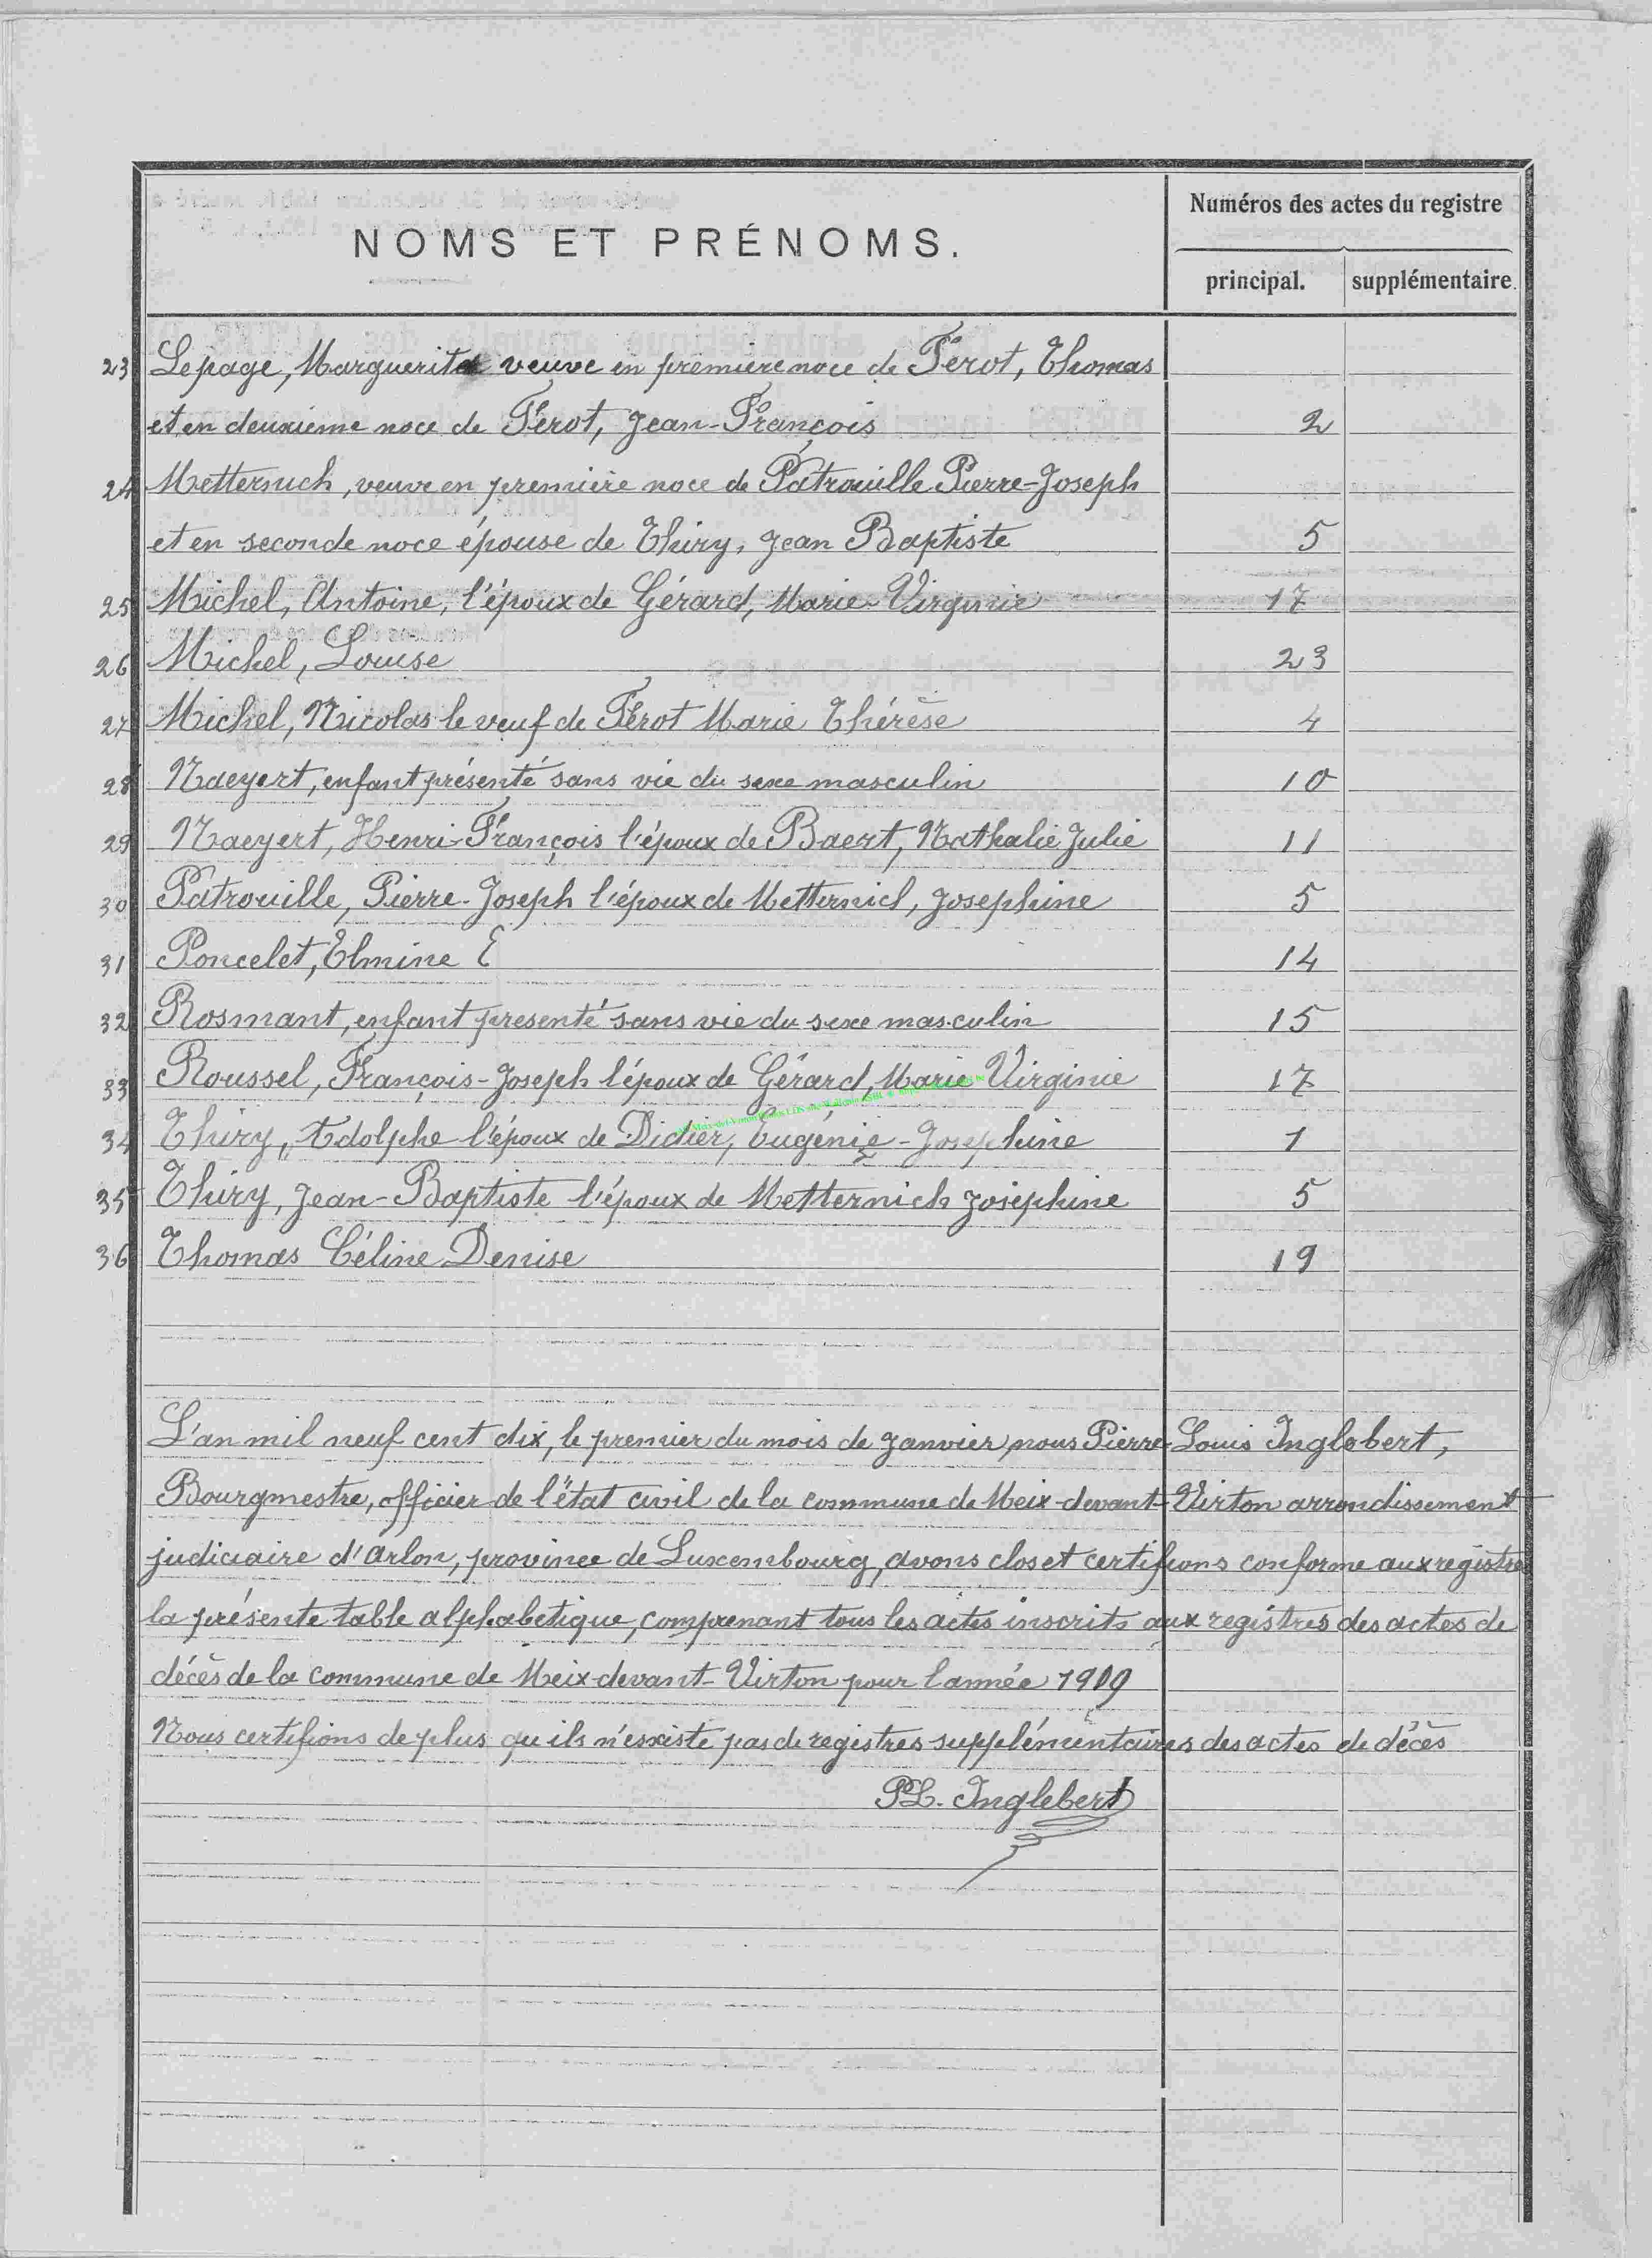 NOMS ET PRÉNOMS.
Numéros des actes du registre
principal. supplémentaire.
23 Lepage, Marguerite veuve en première noce de Férot, Thomas
et en deuxième noce de Férot, Jean-François 2
24 Metternich, veuve en première noce de Patrouille Pierre-Joseph
et en seconde noce épouse de Thiry, Jean Baptiste 5
25 Michel, Antoine, l'époux de Gérard, Marie-Virginie 17
26 Michel, Louise 23
27 Michel, Nicolas le veuf de Férot Marie Thérèse 4
28 Naeyert, enfant présenté sans vie du sexe masculin 10
29 Naeyert, Henri-François l'époux de Baert, Nathalie Julie 11
30 Patrouille, Pierre-Joseph l'époux de Metternich, Josephine 5
31 Poncelet, Elmine E 14
32 Rosmant, enfant presenté sans vie du sexe masculin 15
33 Roussel, François-Joseph l'époux de Gérard, Marie Virginie 17
34 Thiry, Adolphe l'époux de Didier, Eugénie-Josephine 1
35 Thiry, Jean-Baptiste l'époux de Metternich Joséphine 5
36 Thomas Céline Denise 19
L'an mil neuf cent dix, le premier du mois de janvier, nous Pierre-Louis Inglebert,
Bourgmestre, officier de l'état civil de la commune de Meix-devant-Virton arrondissement
judiciaire d'Arlon, province de Luxembourg, avons clos et certifions conforme aux registres
la présente table alphabétique, comprenant tous les actes inscrits aux registres des actes de
décès de la commune de Meix-devant-Virton pour l'année 1909
Nous certifions de plus qu'ils n'existe pas de registres supplémentaires des actes de décès
PL. Inglebert